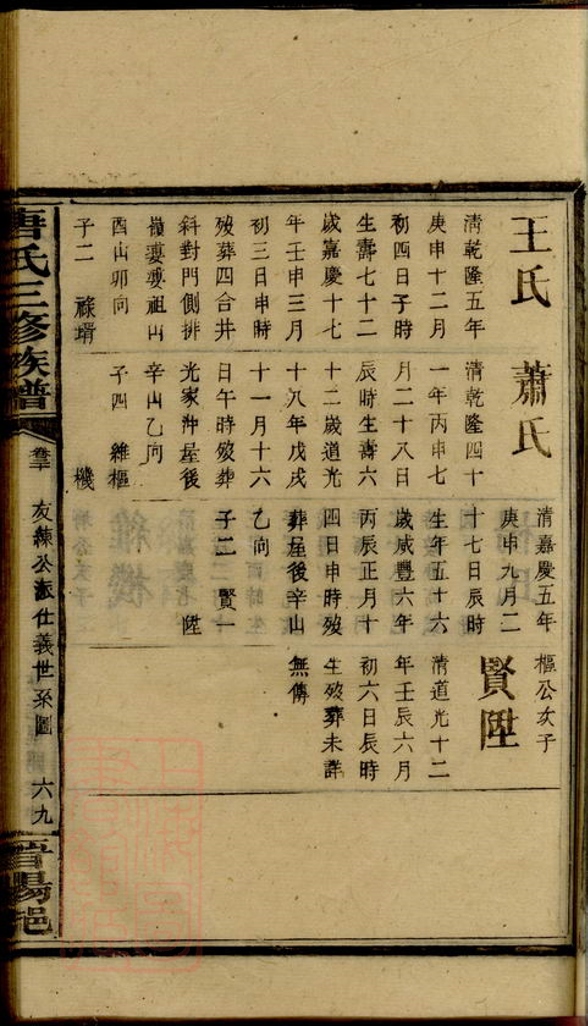 王氏
清乾隆五年
庚申十二月
初四日子時
生壽七十二
歲嘉慶十七
年壬申三月
初三日申時
歿葬四合井
斜對門側排
嶺婆婆祖山
酉山卯向
子二 祿壻
蕭氏
清乾隆四十
一年丙申七
月二十八日
辰時生壽六
十二歲道光
十八年戊戌
十一月十六
日午時歿葬
光家沖屋後
辛山乙向
子四 維樞
機
清嘉慶五年
庚申九月二
十七日辰時
生年五十六
歲咸豐六年
丙辰正月十
四日申時歿
葬屋後辛山
乙向
子二 賢一
陞
樞公次子
賢陞
清道光十二
年壬辰六月
初六日辰時
生歿葬未詳
無傳
唐氏三修族譜
友練公派仕義世系圖
六九
晋陽邑